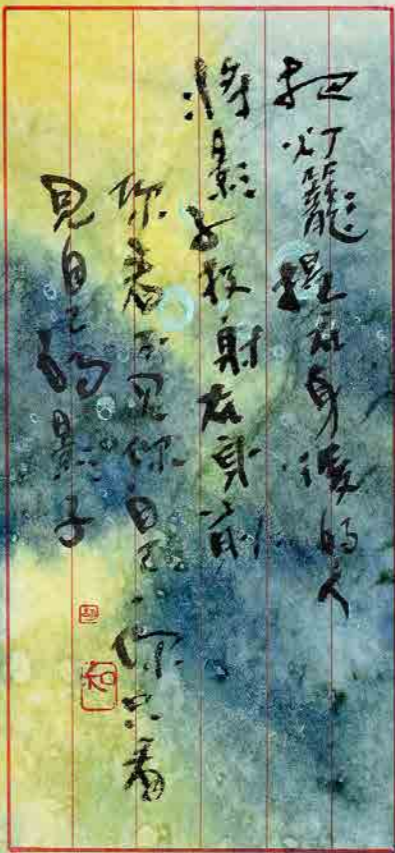 把灯籠提在身後的人
将影子投射在身前
你看不見你自己，你只看
見自己的影子